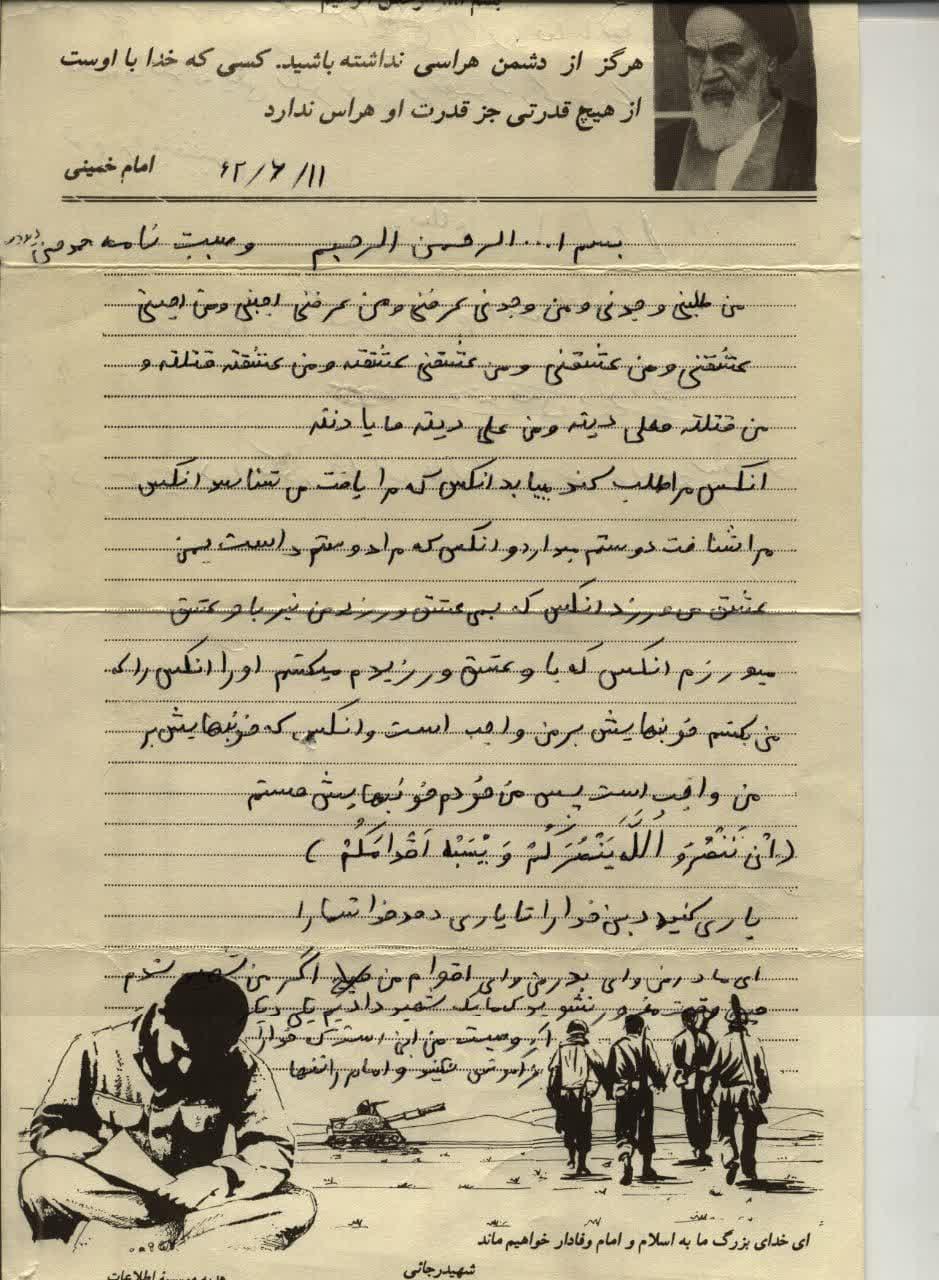 هرگز از دشمن هراسی نداشته باشید. کسی که خدا با اوست
از هیچ قدرتی جز قدرت او هراس ندارد
امام خمینی ۶۲/۶/۱۱
بسم ا... الرحمن الرحیم وصیت نامه
من طلبنی وجدنی و من وجدنی عرفنی و من عرفنی احبنی و من احبنی
عشقنی و من عشقنی و من عشقنی عشقته و من عشقته قتلته و
من قتلته فعلی دیته و من علی دیته فانا دیته
انکس مرا طلب کند بیابد انکس که مرا یافت می شناسد انکس
مرا شناخت دوستم میدارد و انکس که مرا دوستم داست بمن
عشق می ورزد انکس که بمن عشق ورزد من نیز با و عشق
میورزم انکس که با و عشق ورزیدم میکشم او را انکس را که
من بکشم خونبهایش بر من واجب است و انکس که خونبهایش بر
من واجب است پس من خودم خونبهایش هستم
(اِنْ تَنْصُرَو اللَّهَ یَنْصُرَکُمْ وَ یُسَبْه اَقْدامَکُمْ)
یاری کنید دین خدا را تا یاری دهد خدا شما را
ای مادر من وای پدر من وای اقوام من اگر من شهید شدم
وقت مغرور نشوید که ما یک شهید دادیم
وصیت من این است که خدا را
فراموش نکنید و امام را تنها
ای خدای بزرگ ما به اسلام و امام وفادار خواهیم ماند
شهید رجائی